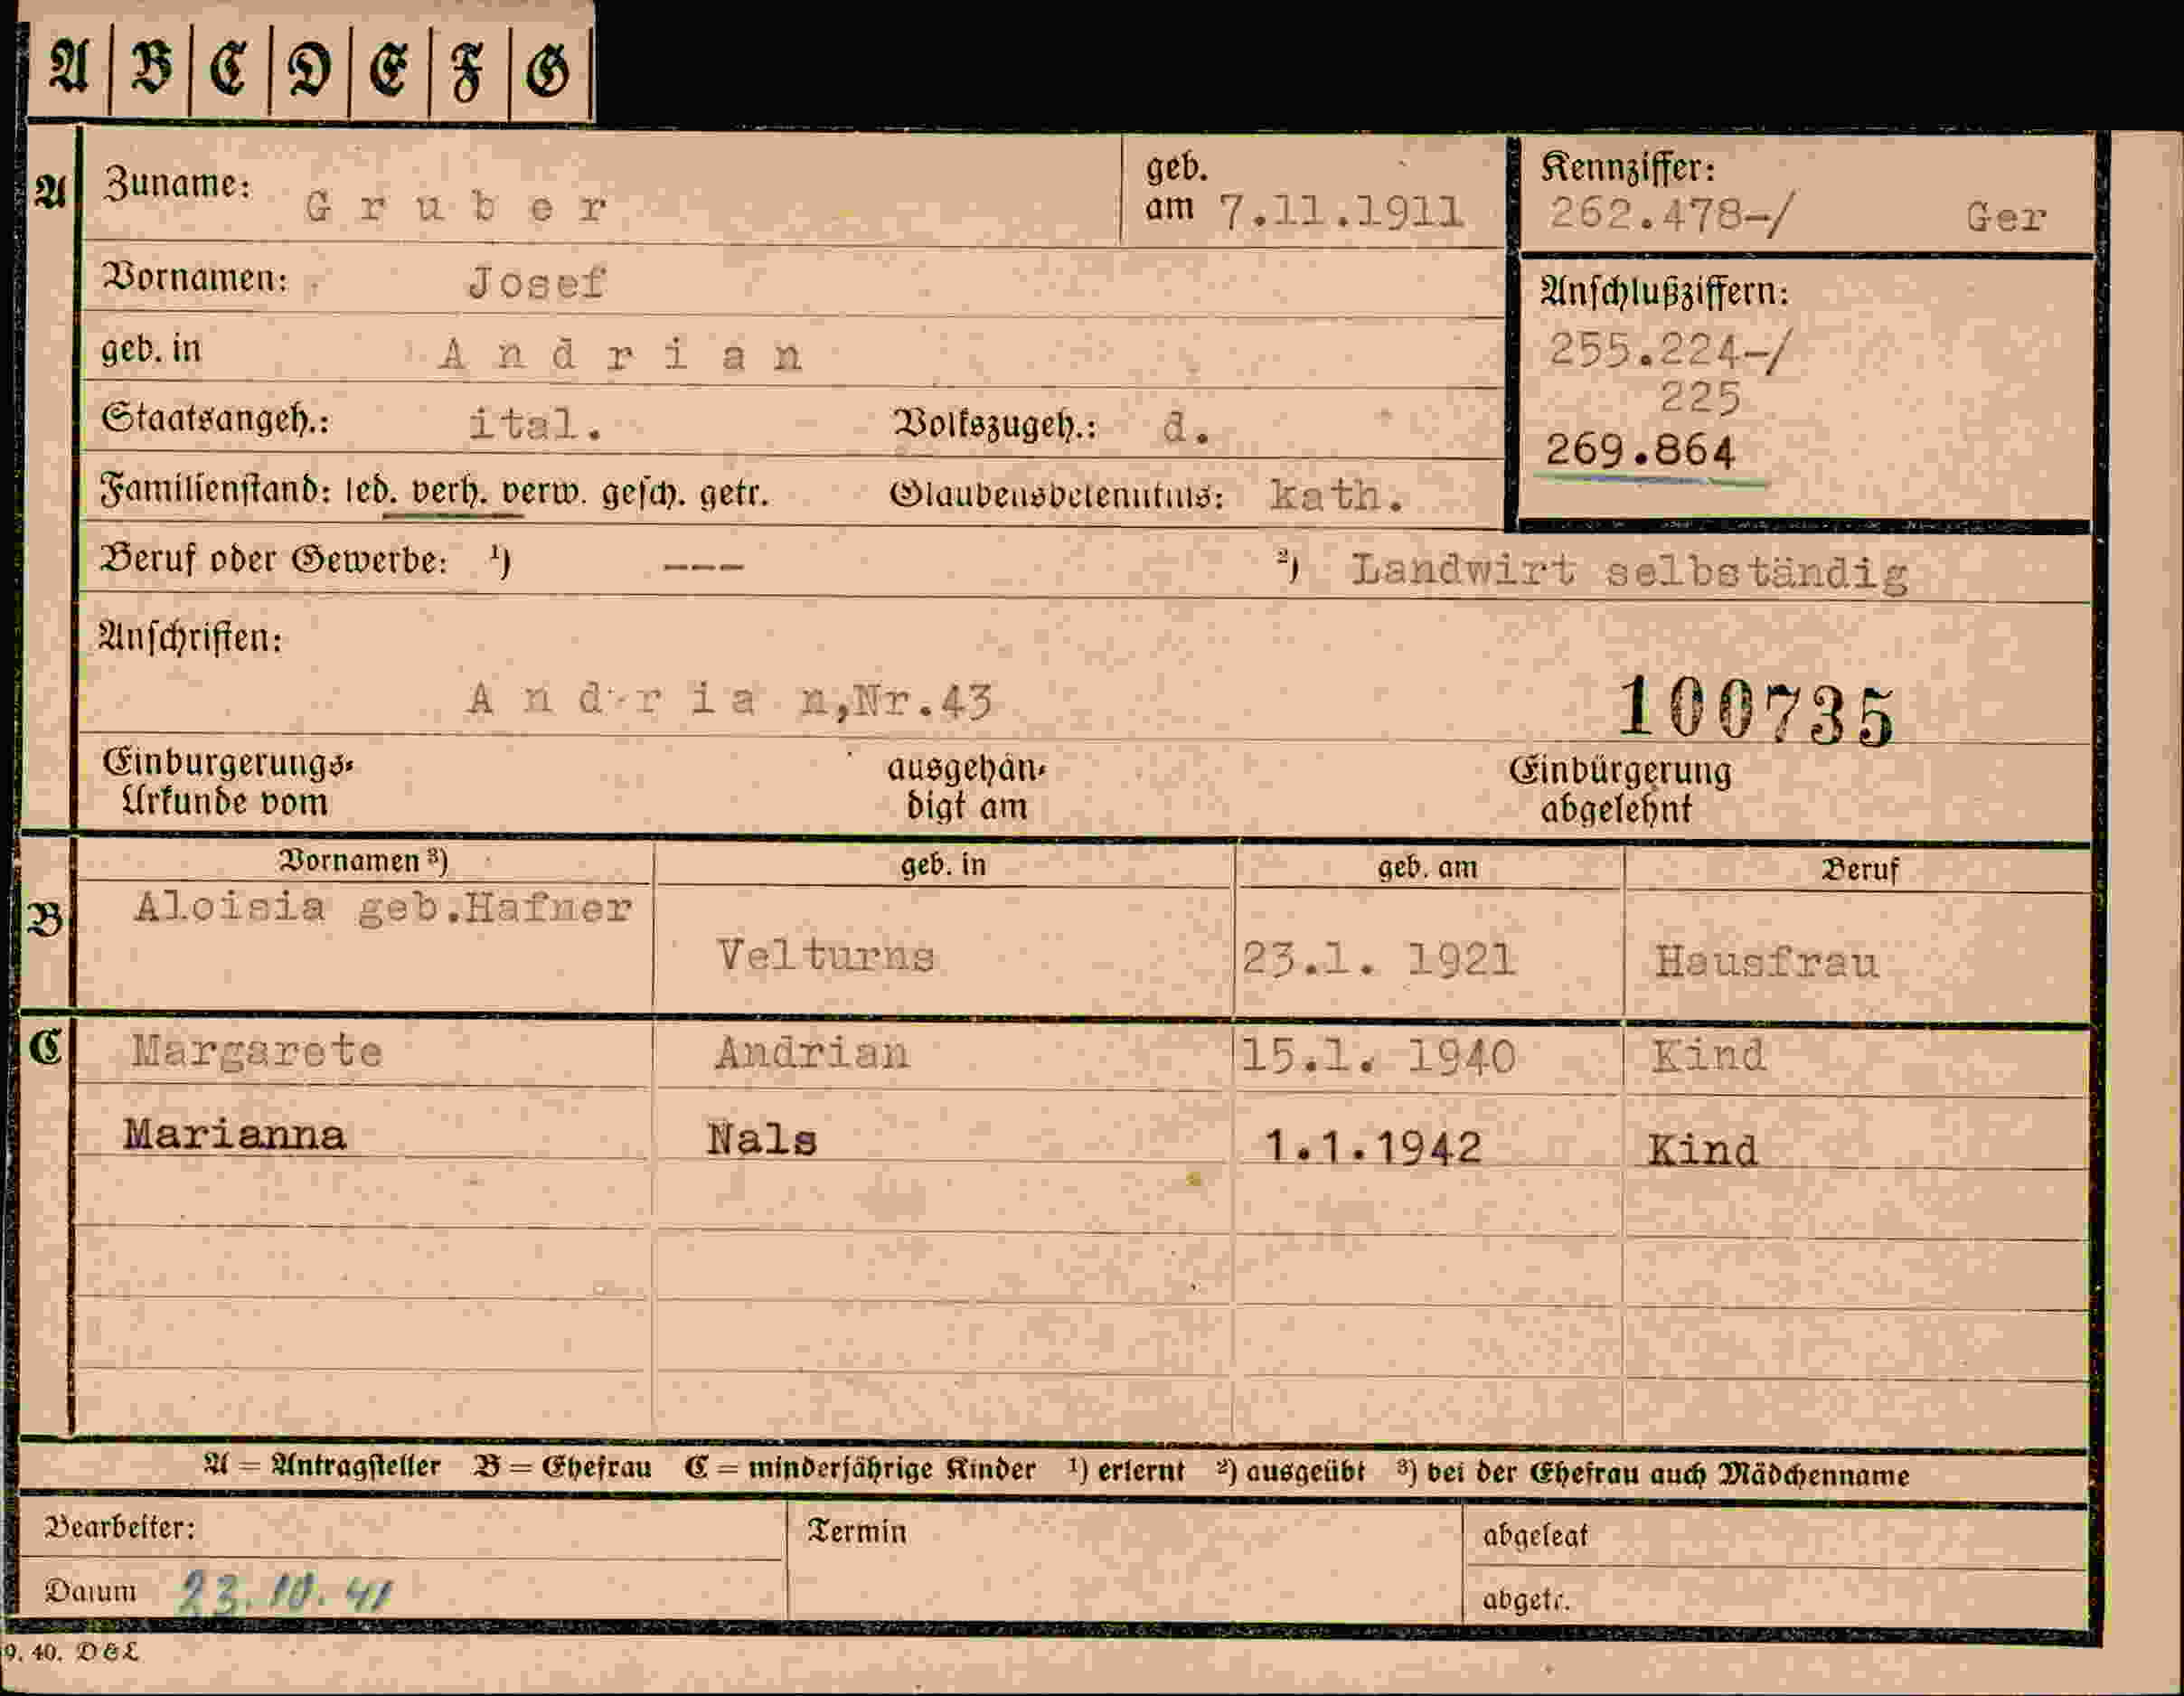 A B C D E F G
A Zuname: Gruber geb. am 7.11.1911 Kennziffer: 262.478-/ Ger
Vornamen: Josef
Anschlußziffern:
geb. in Andrian 255.224-/
225
Staatsangeh.: ital. Volkszugeh.: d.
269.864
Familienstand: led. verh. verw. gesch. getr. Glaubensbekenntnis: kath.
Beruf oder Gewerbe: ¹) --- ²) Landwirt selbständig
Anschriften:
Andrian,Nr.43 100735
Einbürgerungs- ausgehän- Einbürgerung
Urkunde vom digt am abgelehnt
Vornamen ³) geb. in geb. am Beruf
B Aloisia geb.Hafner
Velturns 23.1. 1921 Hausfrau
C Margarete Andrian 15.1. 1940 Kind
Marianna Nals 1.1.1942 Kind
A = Antragsteller B = Ehefrau C = minderjährige Kinder ¹) erlernt ²) ausgeübt ³) bei der Ehefrau auch Mädchenname
Bearbeiter: Termin abgelegt
Datum 23.10.41 abgetr.
9. 40. D&L